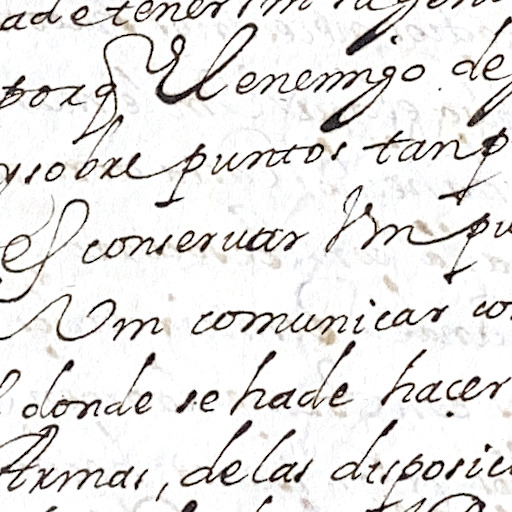 ade tener
porq El enemigo de
y sobre puntos tan p
es conseruar Vm pu
Vm comunicar co
donde se hade haçer
Armas, delas disposici